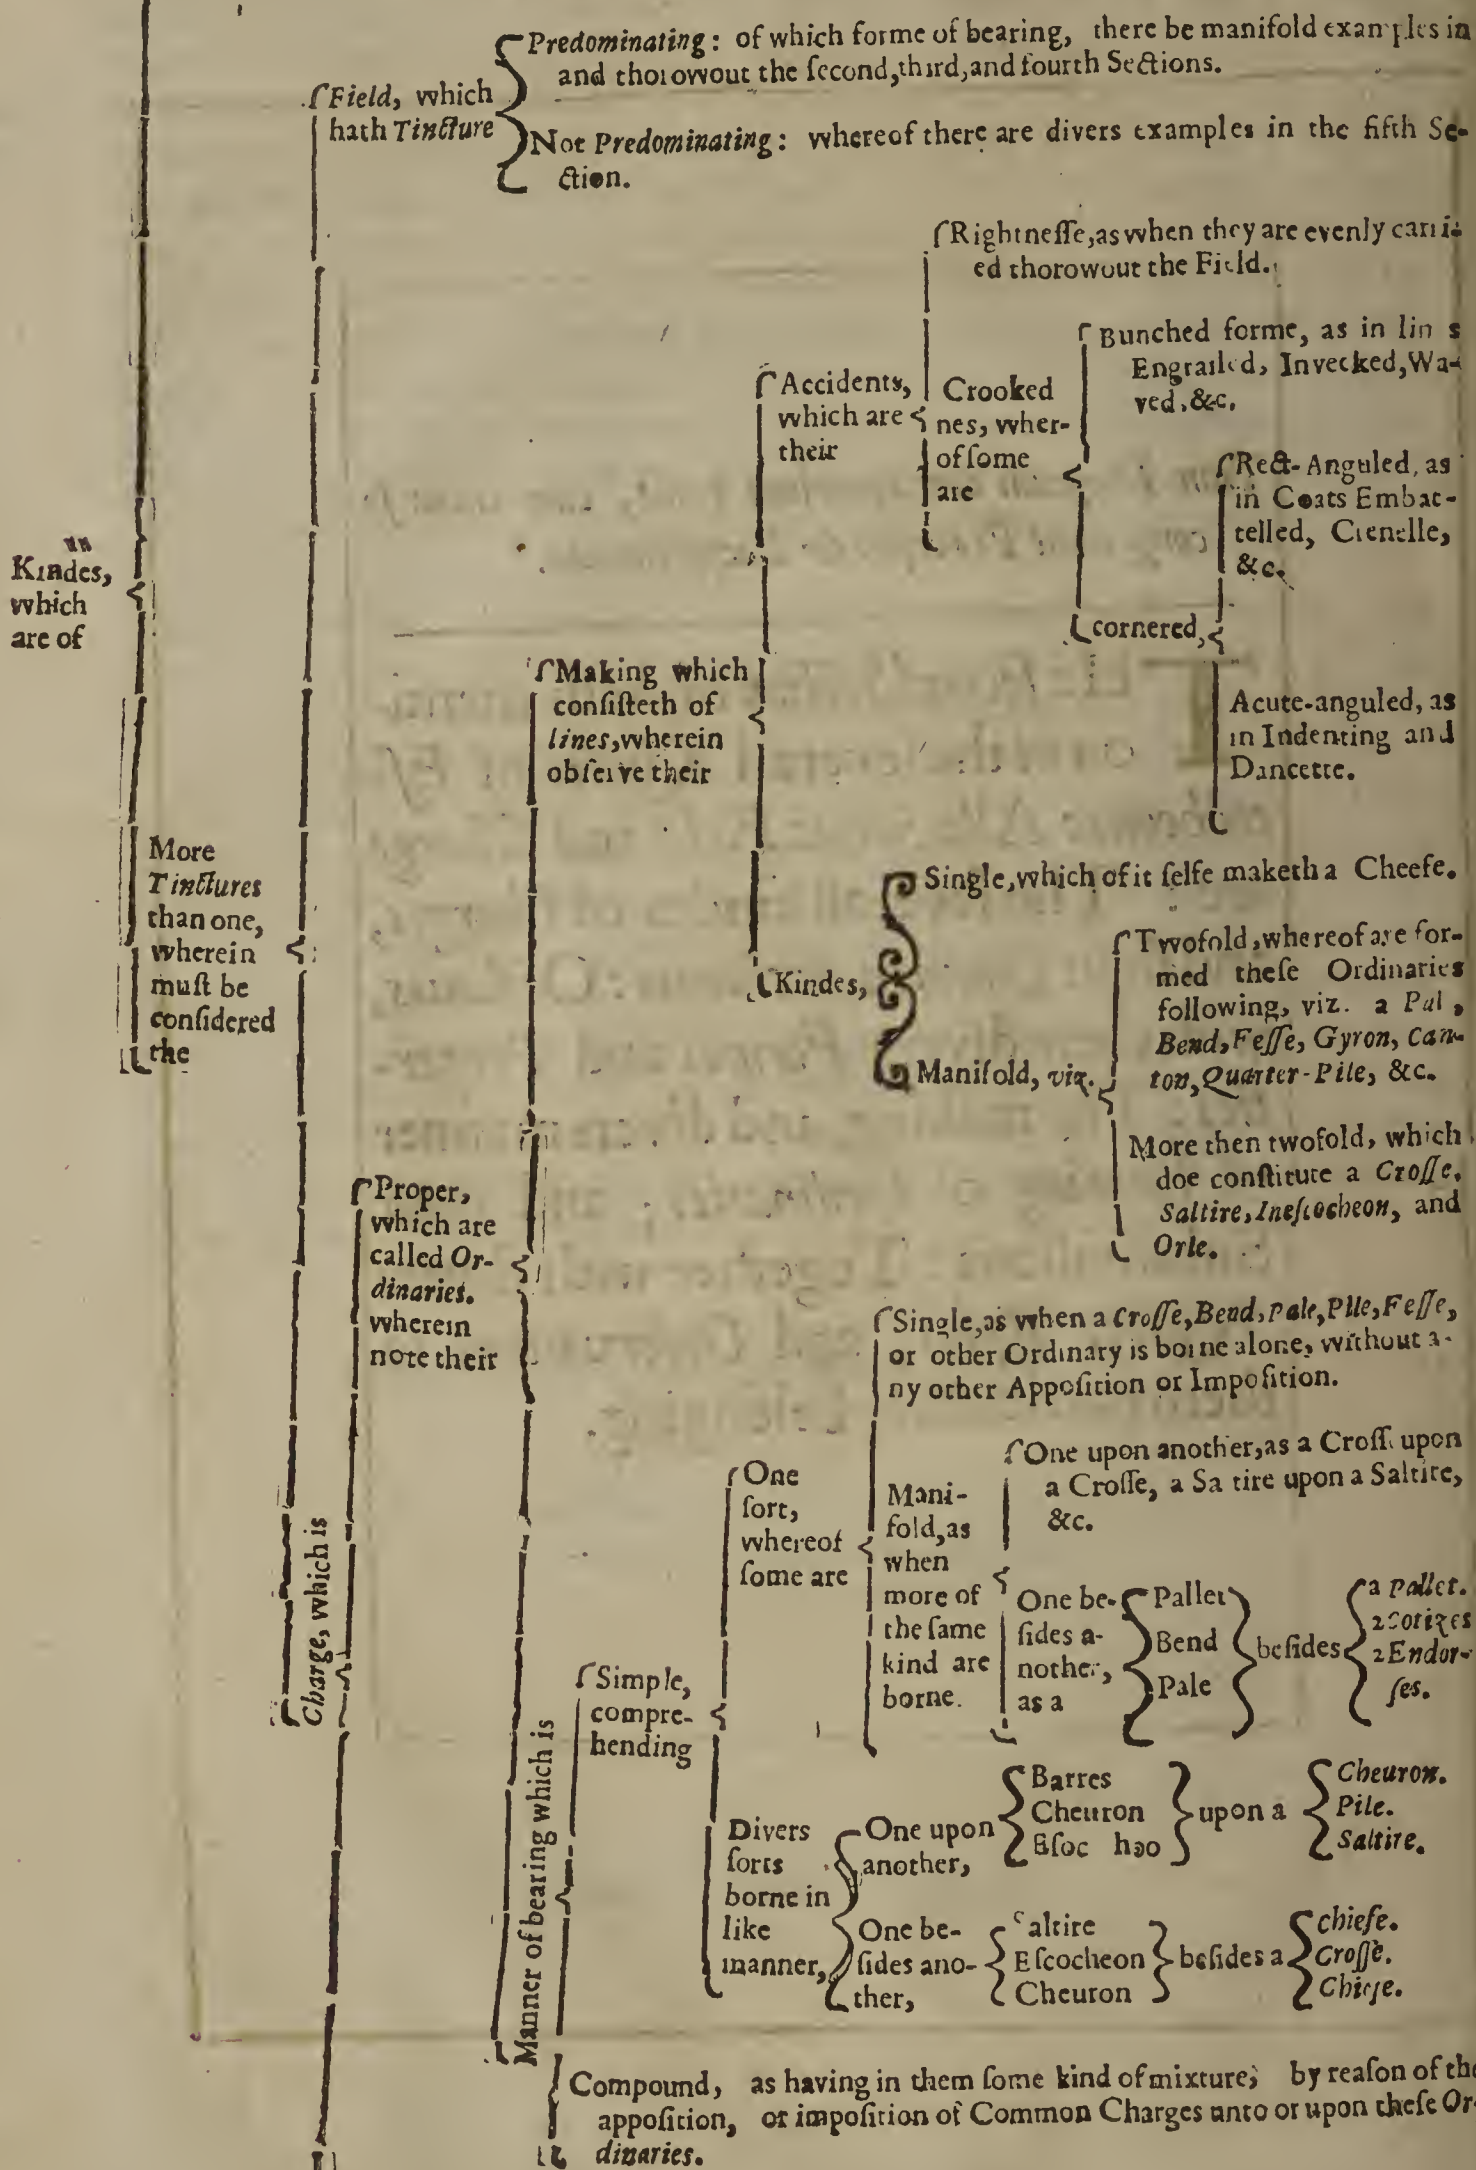 Kindes,
which
are of
More
Tinctures
than one,
wherein
must be
considered
the
Field, which
hath Tincture
Predominating: of which forme of bearing, there be manifold examples in
and thorowout the second, third, and fourth Sections.
Not Predominating: whereof there are divers examples in the fifth Se-
ction.
Charge, which is
Proper,
which are
called Or-
dinaries.
wherein
note their
Making which
consisteth of
lines, wherein
observe their
Accidents,
which are
their
Rightnesse, as when they are evenly carri-
ed thorowout the Field.
Crooked
nes, wher-
of some
are
Bunched forme, as in lin s
Engrailed, Invecked, Wa-
ved, &c.
cornered,
Rect-Anguled, as
in Coats Embat-
telled, Crenelle,
&c.
Acute-anguled, as
in Indenting and
Dancette.
Kindes,
Single, which of it selfe maketh a Cheefe.
Manifold, viz.
Twofold, whereof are for-
med these Ordinaries
following, viz. a Pal ,
Bend, Fesse, Gyron, Can-
ton, Quarter-Pile, &c.
More then twofold, which
doe constitute a Crosse,
Saltire, Inescocheon, and
Orle.
Manner of bearing which is
Simple,
compre-
hending
One
sort,
whereof
some are
Single, as when a Crosse, Bend, Pale, Pile, Fesse,
or other Ordinary is borne alone, without a-
ny other Apposition or Imposition.
Mani-
fold, as
when
more of
the same
kind are
borne.
One upon another, as a Cross upon
a Crosse, a Sa tire upon a Saltire,
&c.
One be-
sides a-
nother,
as a
Pallet
Bend
Pale
besides
a Pallet.
2 Cotizes
2 Endor-
ses.
Divers
sorts
borne in
like
manner,
One upon
another,
Barres
Cheuron
Esoc heo
upon a
Cheuron.
Pile.
Saltire.
One be-
sides ano-
ther,
Saltire
Escocheon
Cheuron
besides a
chiefe.
Crosse.
Chiefe.
Compound, as having in them some kind of mixture; by reason of the
apposition, or imposition of Common Charges unto or upon these Or-
dinaries.